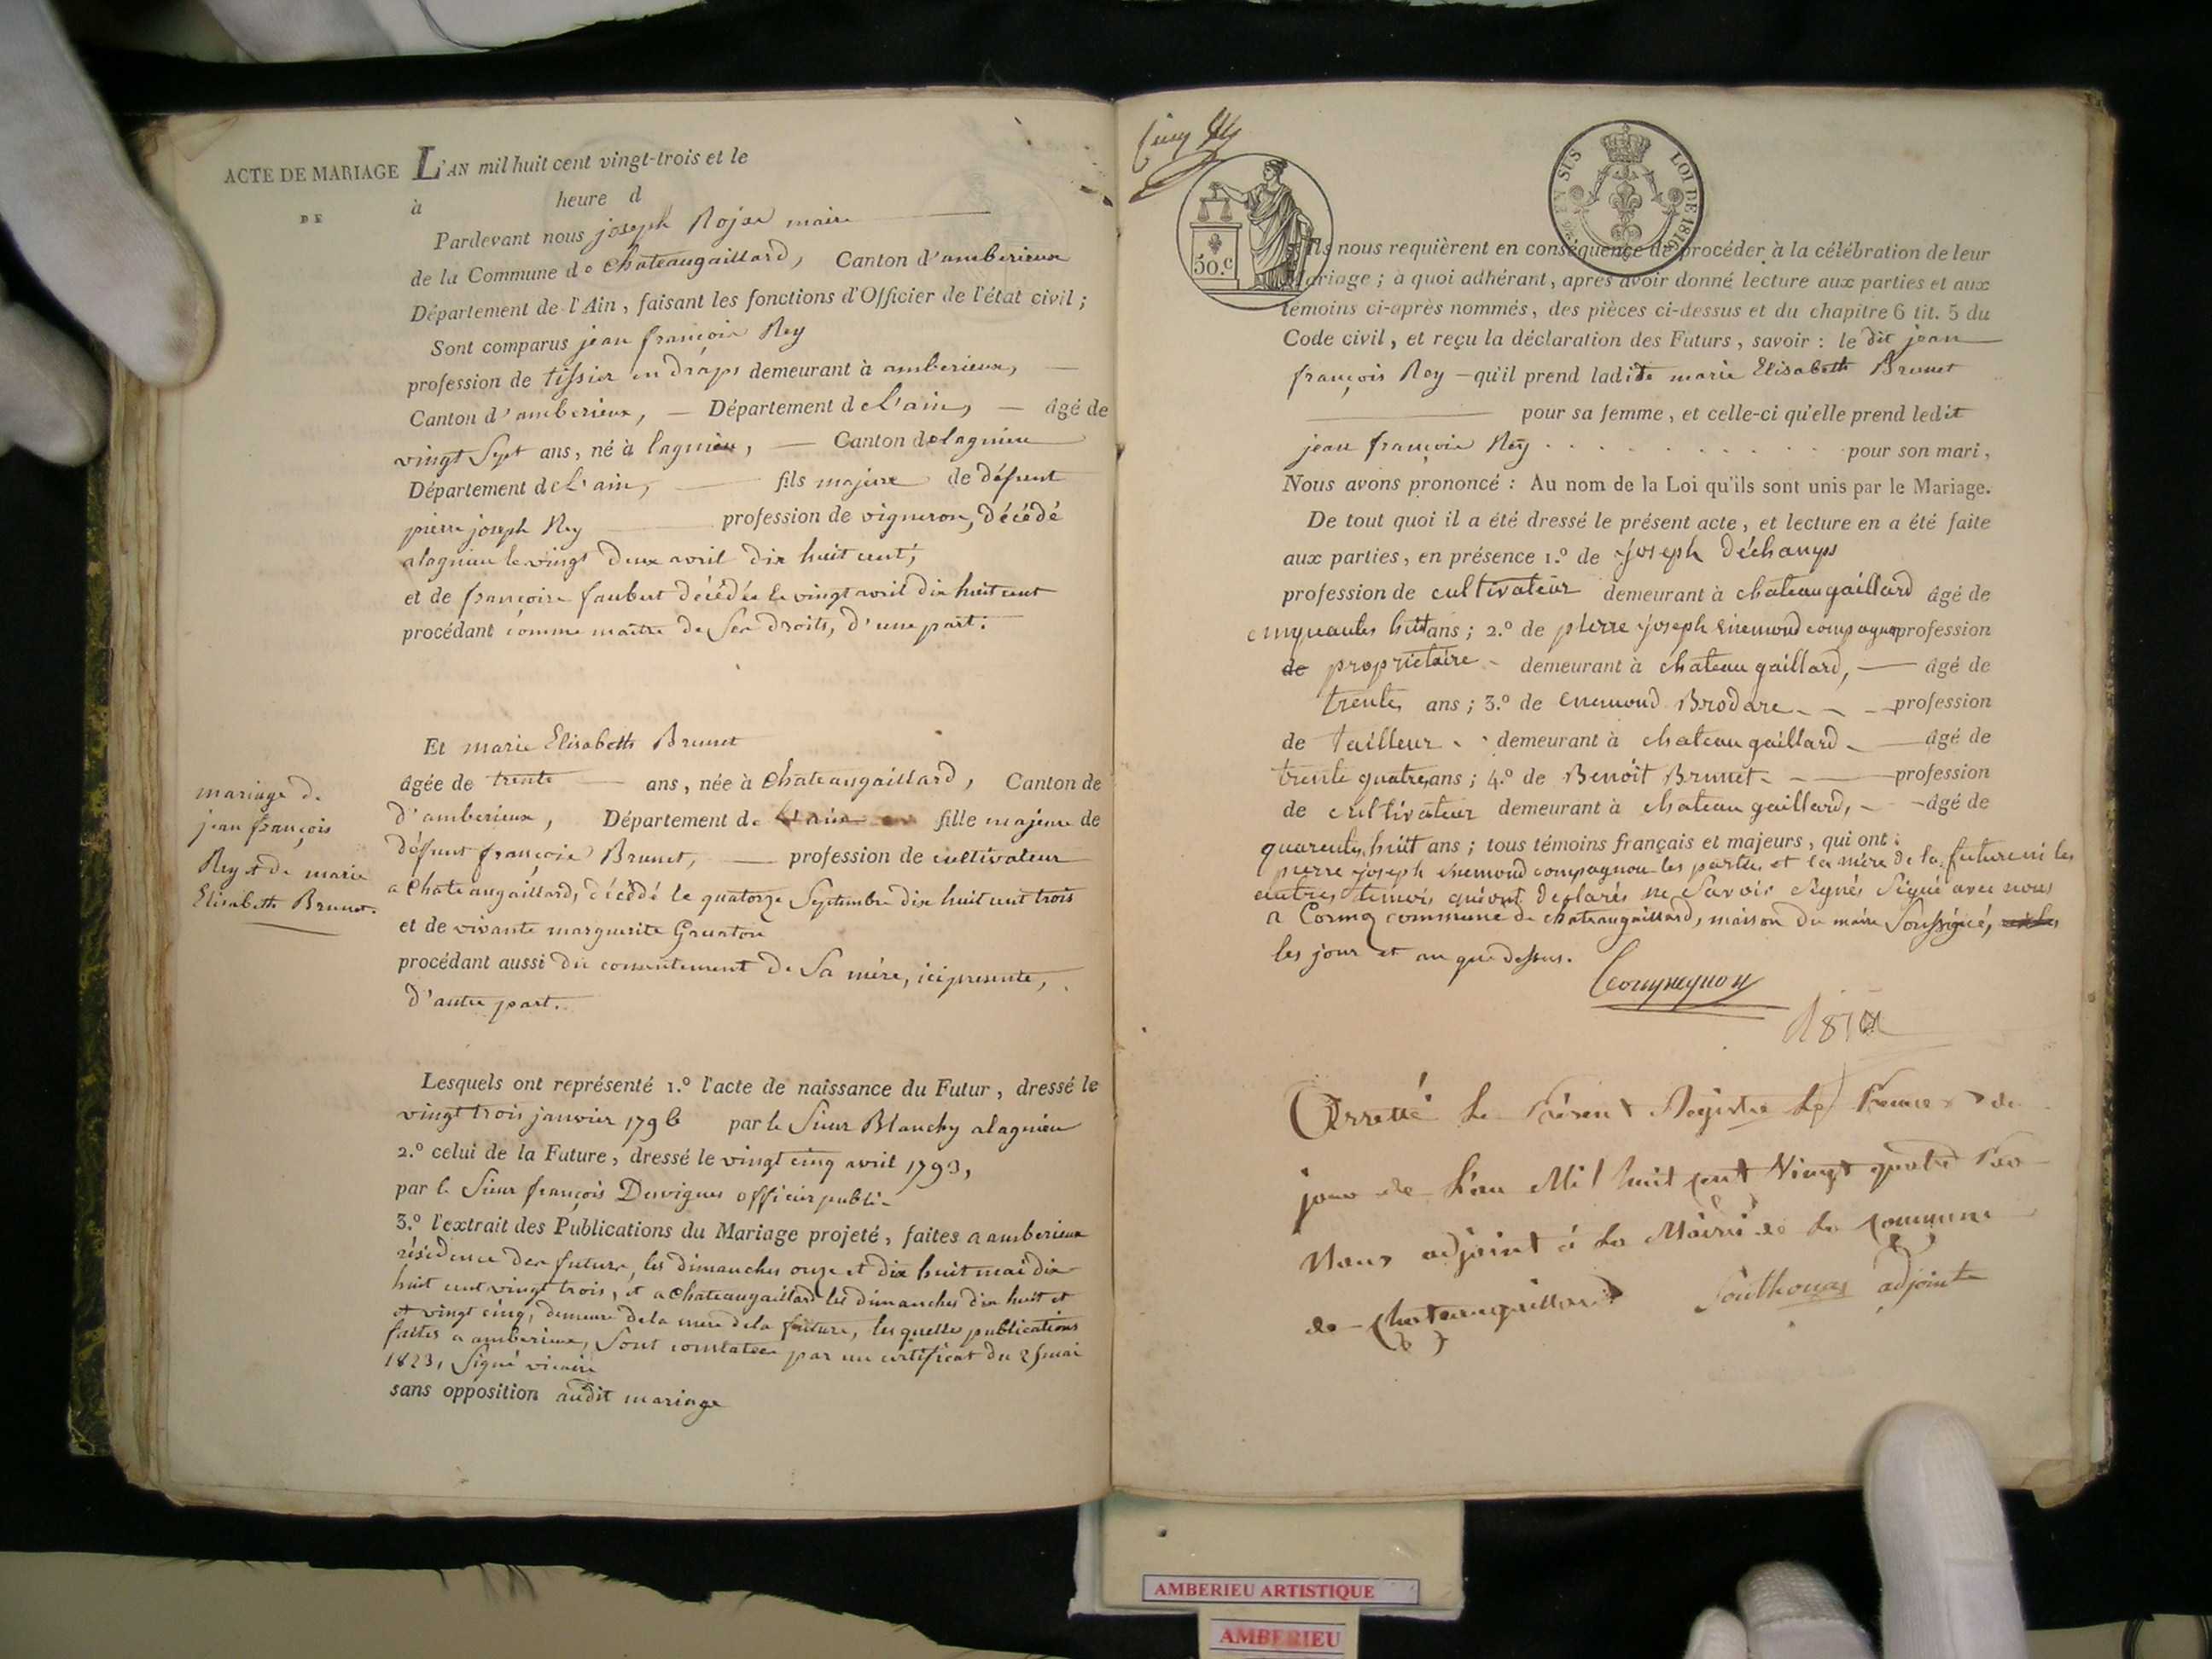 ACTE DE MARIAGE
DE
L'AN mil huit cent vingt-trois et le
à heure d
Pardevant nous joseph Rojat maire
de la Commune de Chateaugaillard, Canton d'amberieux
Département de l'Ain, faisant les fonctions d'Officier de l'état civil ;
Sont comparus jean françois Rey
profession de tissier en draps demeurant à amberieux,
Canton d'amberieux, — Département de l'ain, — âgé de
vingt Sept ans, né à lagnieu, — Canton de lagnieu
Département de l'ain, — fils majeur de défunt
pierre joseph Rey profession de vigneron, décédé
a lagnieu le vingt deux avril dix huit cent,
et de françoise faubert décédée le vingt avril dix huit cent
procédant comme maître de Ses droits, d'une part.
Et marie Elisabeth Brunet
âgée de trente — ans, née à Chateaugaillard, Canton de
d'amberieux, Département de fille majeure de
défunt françois Brunet, — profession de cultivateur
a Chateaugaillard, décédé le quatorze Septembre dix huit cent trois
et de vivante marguerite
procédant aussi du consentement de Sa mère, ici présente,
d'autre part.
mariage de
jean françois
Rey et de marie
Elisabeth Brunet.
Lesquels ont représenté 1.° l'acte de naissance du Futur, dressé le
vingt trois janvier 1796 par le Sieur Blanchy a lagnieu
2.° celui de la Future, dressé le vingt cinq avril 1793,
par le Sieur françois Desvignes officier public
3.° l'extrait des Publications du Mariage projeté, faites a amberieux
résidence des futurs, les dimanches onze et dix huit mai dix
huit cent vingt trois, et a Chateaugaillard les dimanches dix huit et
et vingt cinq, demeure de la mere de la future, les quelles publications
faites a amberieux, Sont constatées par un certificat du 25 mai
1823, Signé vicaire
sans opposition audit mariage
50.c
EN SUS
LOI DE 1816
Ils nous requièrent en conséquence de procéder à la célébration de leur
Mariage ; à quoi adhérant, après avoir donné lecture aux parties et aux
témoins ci-après nommés, des pièces ci-dessus et du chapitre 6 tit. 5 du
Code civil, et reçu la déclaration des Futurs, savoir : le dit jean
françois Rey — qu'il prend ladite marie Elisabeth Brunet
pour sa femme, et celle-ci qu'elle prend ledit
jean françois Rey . . . . . . . . . . pour son mari,
Nous avons prononcé : Au nom de la Loi qu'ils sont unis par le Mariage.
De tout quoi il a été dressé le présent acte, et lecture en a été faite
aux parties, en présence 1.° de joseph déchamps
profession de cultivateur demeurant à chateaugaillard âgé de
cinquantes huit ans ; 2.° de pierre joseph Enemond compagnon profession
de propriétaire - demeurant à chateau gaillard, — âgé de
trentes ans ; 3.° de Enemond Brodare - - - profession
de tailleur - - demeurant à chateau gaillard - — âgé de
trente quatre ans ; 4.° de Benoit Brunet - — profession
de cultivateur demeurant à chateau gaillard, - - âgé de
quarentes huit ans ; tous témoins français et majeurs, qui ont :
pierre joseph Enemond compagnon les parties et la mère de la future ni les
autres temois qui ont declarés ne Savoir Signés Signé avec nous
a Cormoz commune de chateaugaillard, maison du maire Soussigné,
les jour et an que dessus.
Compagnon
Arretté le Présent Registre le Premier de
jour de l'an Mil huit cent Vingt quatre Par
Nous adjoint à la Mairie de la Commune
de Chateaugaillard Southonax adjointe
AMBERIEU ARTISTIQUE
AMBERIEU